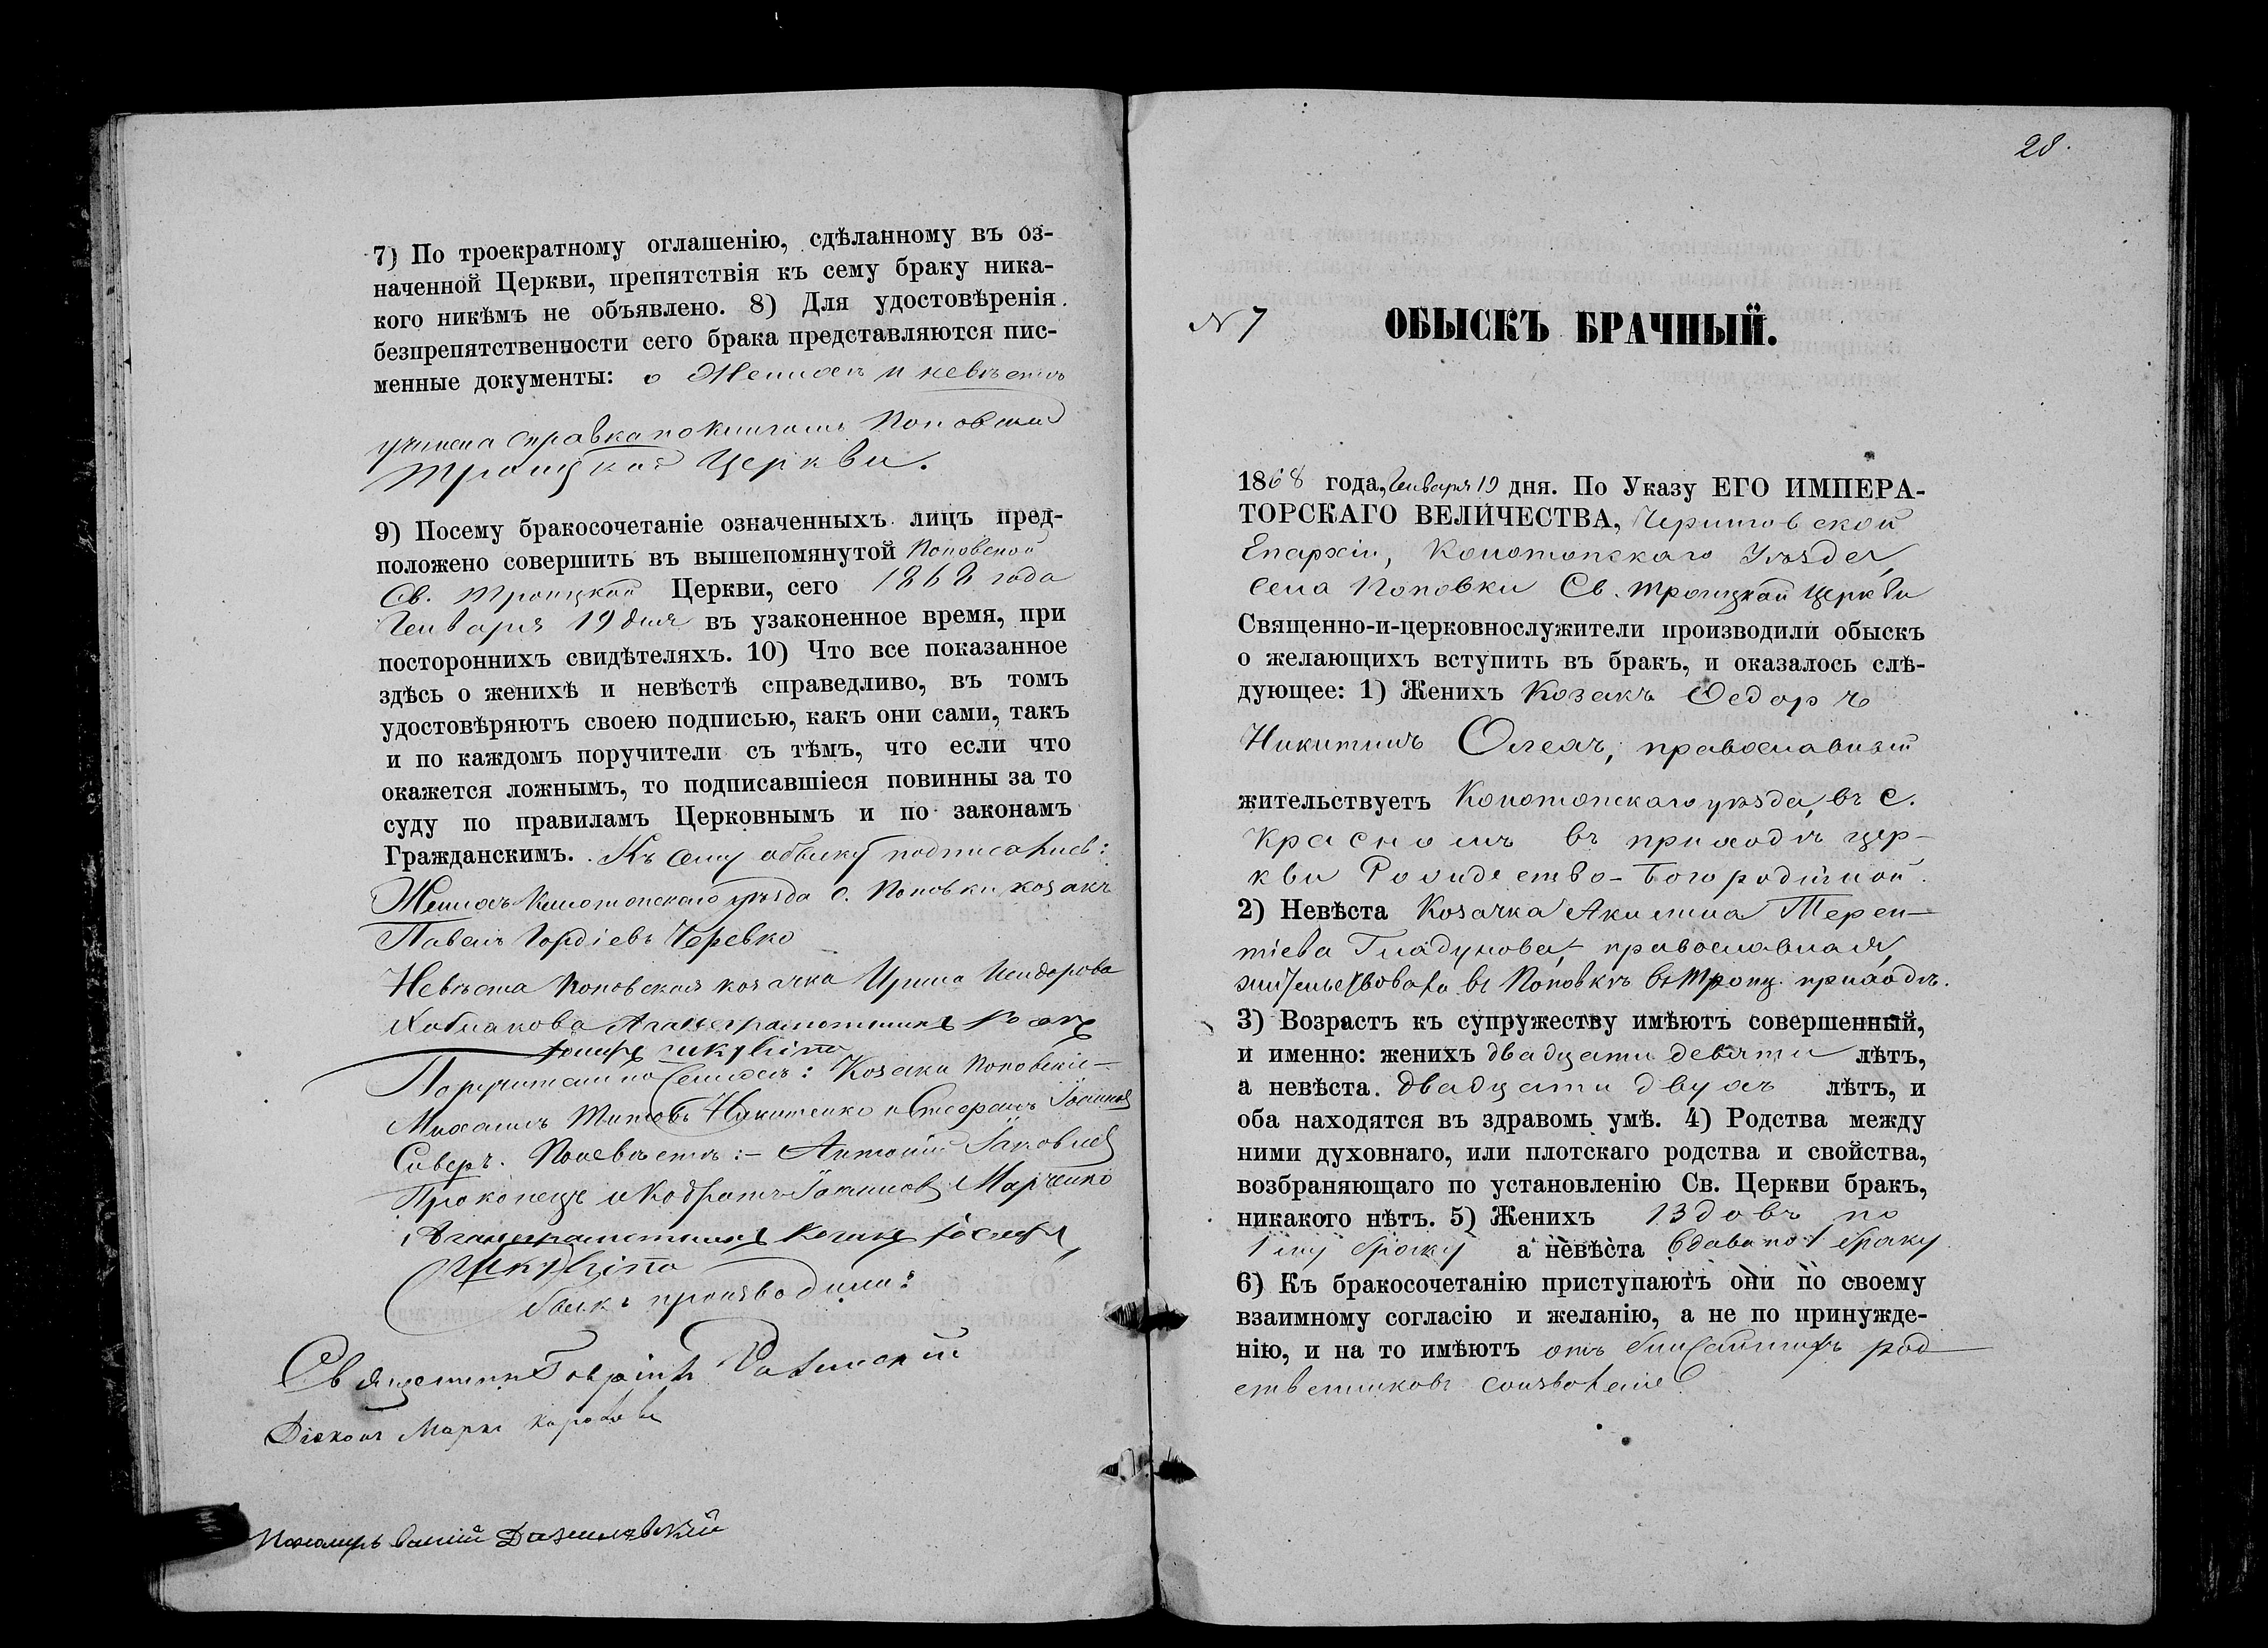 7) По троекратному оглашенію, сдѣланному въ оз-
наченной Церкви, препятствія къ сему браку ника-
кого никѣмъ не объявлено. 8) Для удостовѣренія
безпрепятственности сего брака представляются пис-
менные документы: о Женихѣ и невѣстѣ
учинена справка по книгамъ Поповской
Троицкой Церкви.
9) Посему бракосочетаніе означенныхъ лицъ пред-
положено совершить въ вышепомянутой Поповской
Св. Троицкой Церкви, сего 1868 года
Генваря 19 дня въ узаконенное время, при
постороннихъ свидѣтеляхъ. 10) Что все показанное
здѣсь о женихѣ и невѣстѣ справедливо, въ томъ
удостовѣряютъ своею подписью, какъ они сами, такъ
и по каждомъ поручители съ тѣмъ, что если что
окажется ложнымъ, то подписавшіеся повинны за то
суду по правиламъ Церковнымъ и по законамъ
Гражданскимъ. Къ сему обыску подписались:
Женихъ Конотопскаго уѣзда с. Поповки козакъ
Павелъ Гордіевъ Черевко
Невѣста Поповская козачка Ирина Исидорова
Поручители по Женихѣ: Козаки Поповскіе
Михаилъ Титовъ Никитенко и Стефанъ Іоанновъ
Сиверъ. По невѣстѣ:- Антоній Іаковлевъ
Прокопецъ и Кодратъ Іоанновъ Марченко
Обыскъ производили:
Священникъ Гавріилъ
Діаконъ Марко
Пономарь
28.
N 7 ОБЫСКЪ БРАЧНЫЙ.
1868 года, Генваря 19 дня. По Указу ЕГО ИМПЕРА-
ТОРСКАГО ВЕЛИЧЕСТВА, Черниговской
Епархіи, Конотопскаго Уѣзда,
села Поповки Св. Троицкой Церкви
Священно-и-церковнослужители производили обыскъ
о желающихъ вступить въ бракъ, и оказалось слѣ-
дующее: 1) Женихъ Козакъ Ѳедоръ
Никитинъ православный
жительствуетъ Конотопскаго уѣзда, въ с.
Красномъ въ приходѣ цер-
кви Рождество-Богородичной.
2) Невѣста Козачка Акилина Терен-
тіева Гладунова, православная,
жительствовала въ Поповкѣ въ Троиц. приходѣ.
3) Возрастъ къ супружеству имѣютъ совершенный,
и именно: женихъ двадцати девяти лѣтъ,
а невѣста двадцати двухъ лѣтъ, и
оба находятся въ здравомъ умѣ. 4) Родства между
ними духовнаго, или плотскаго родства и свойства,
возбраняющаго по установленію Св. Церкви бракъ,
никакого нѣтъ. 5) Женихъ вдовъ по
1му браку а невѣста вдова по 1 браку
6) Къ бракосочетанію приступаютъ они по своему
взаимному согласію и желанію, а не по принужде-
нію, и на то имѣютъ отъ ближайшихъ род
ственниковъ соизволеніе.